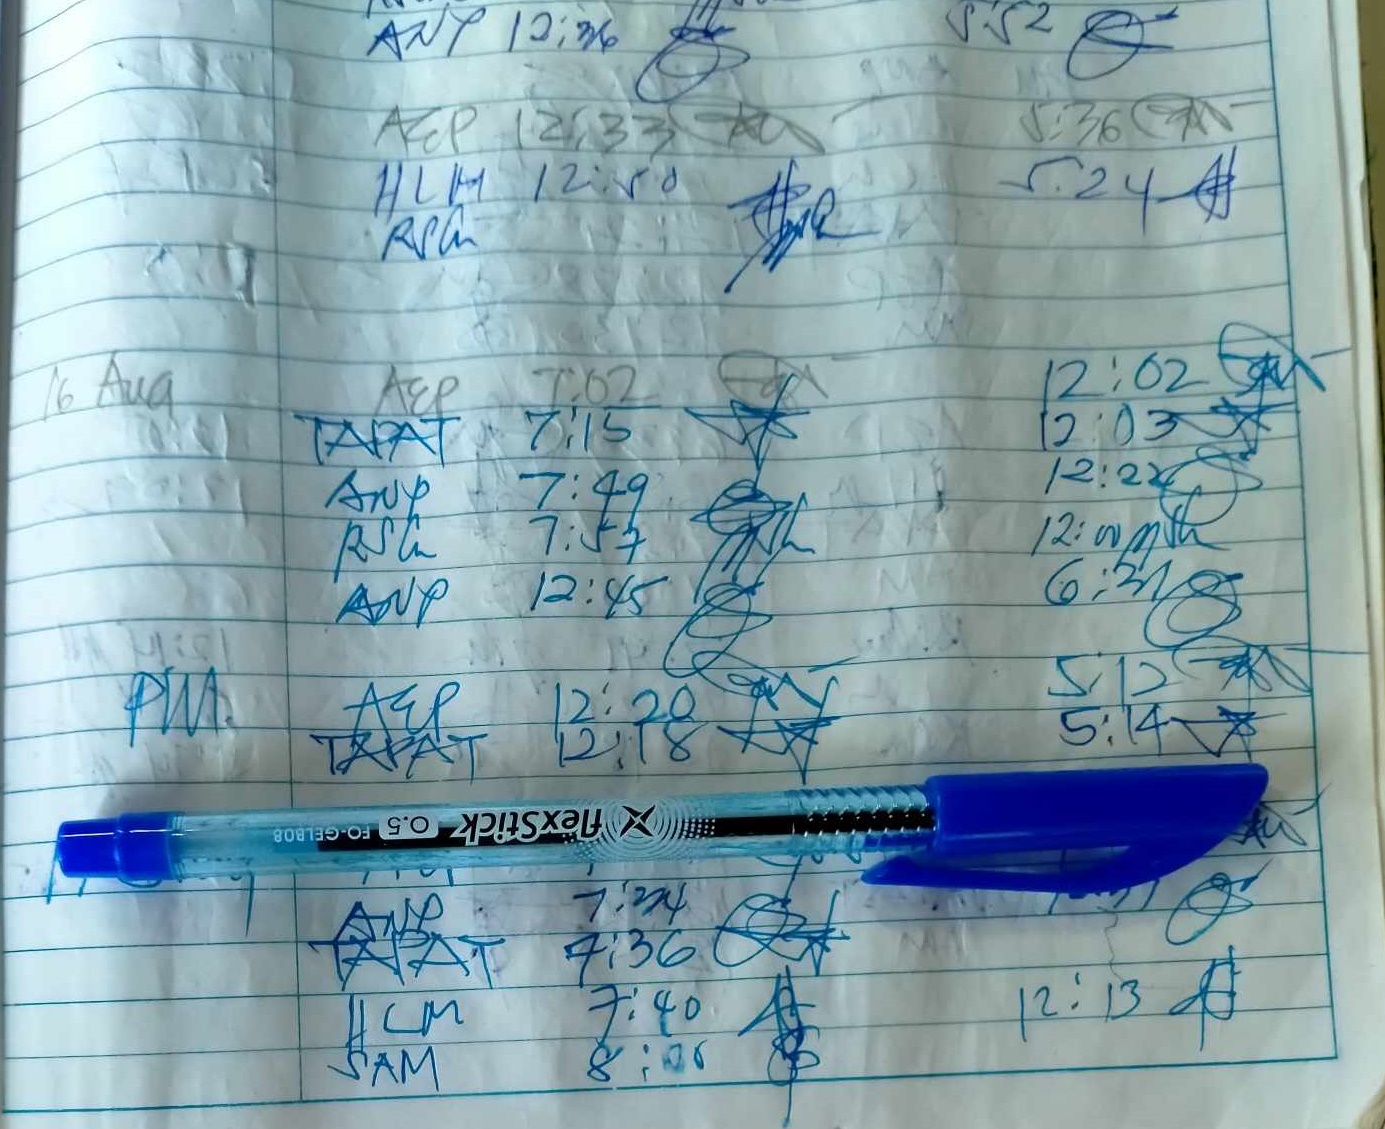 ANP 12:36 5:52
AEP 12:33 5:36
HLM 12:50 5:24
RSG
16 Aug AEP 7:02 12:02
TAPAT 7:15 12:03
ANP 7:49 12:22
RSG 7:57 12:00
ANP 12:45 6:31
PM. AEP 12:20 5:12
TAPAT 12:18 5:14
flexStick 0.5 FO-GELB08
ANP 7:34
TAPAT 7:36
HLM 7:40 12:13
SAM 8: